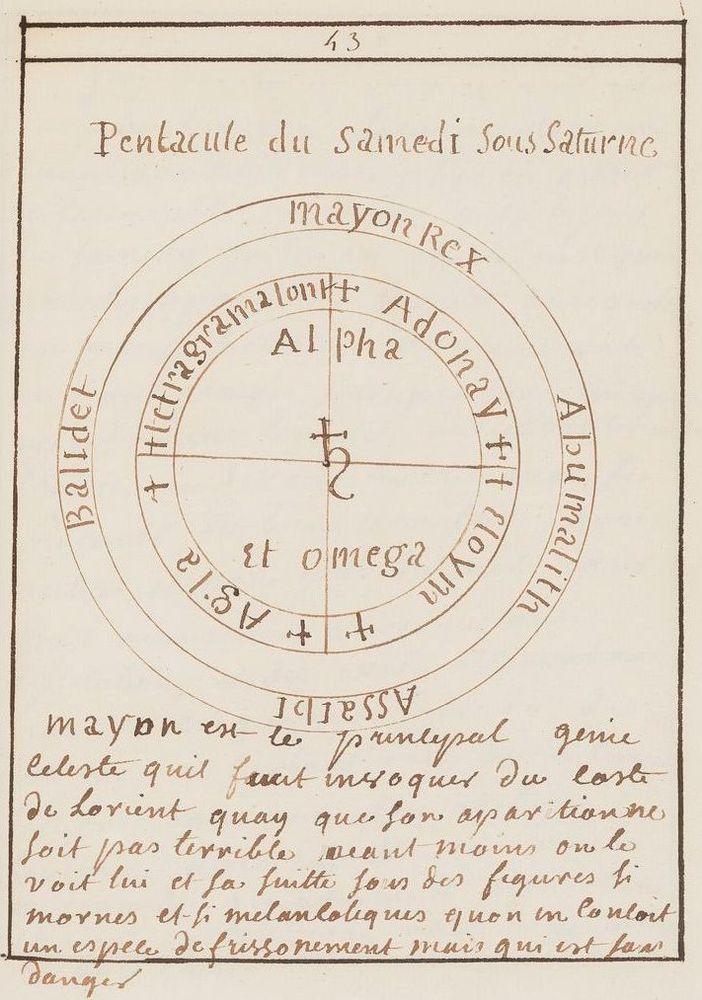 43
Pentacule du Samedi sous Saturne
mayon Rex
Abumalith
Assaibi
Balidet
+ Adonay +
+ Eloym +
+ Agla +
tetragramaton +
Alpha
♄
Et omega
mayon est le principal genie
Celeste quil faut invoquer du coste
de Lorient quoy que son aparition ne
soit pas terrible neant moins on le
voit lui et sa suitte sous des figures si
mornes et si melancoliques quon en concoit
un espece de frissonement mais qui est sans
danger